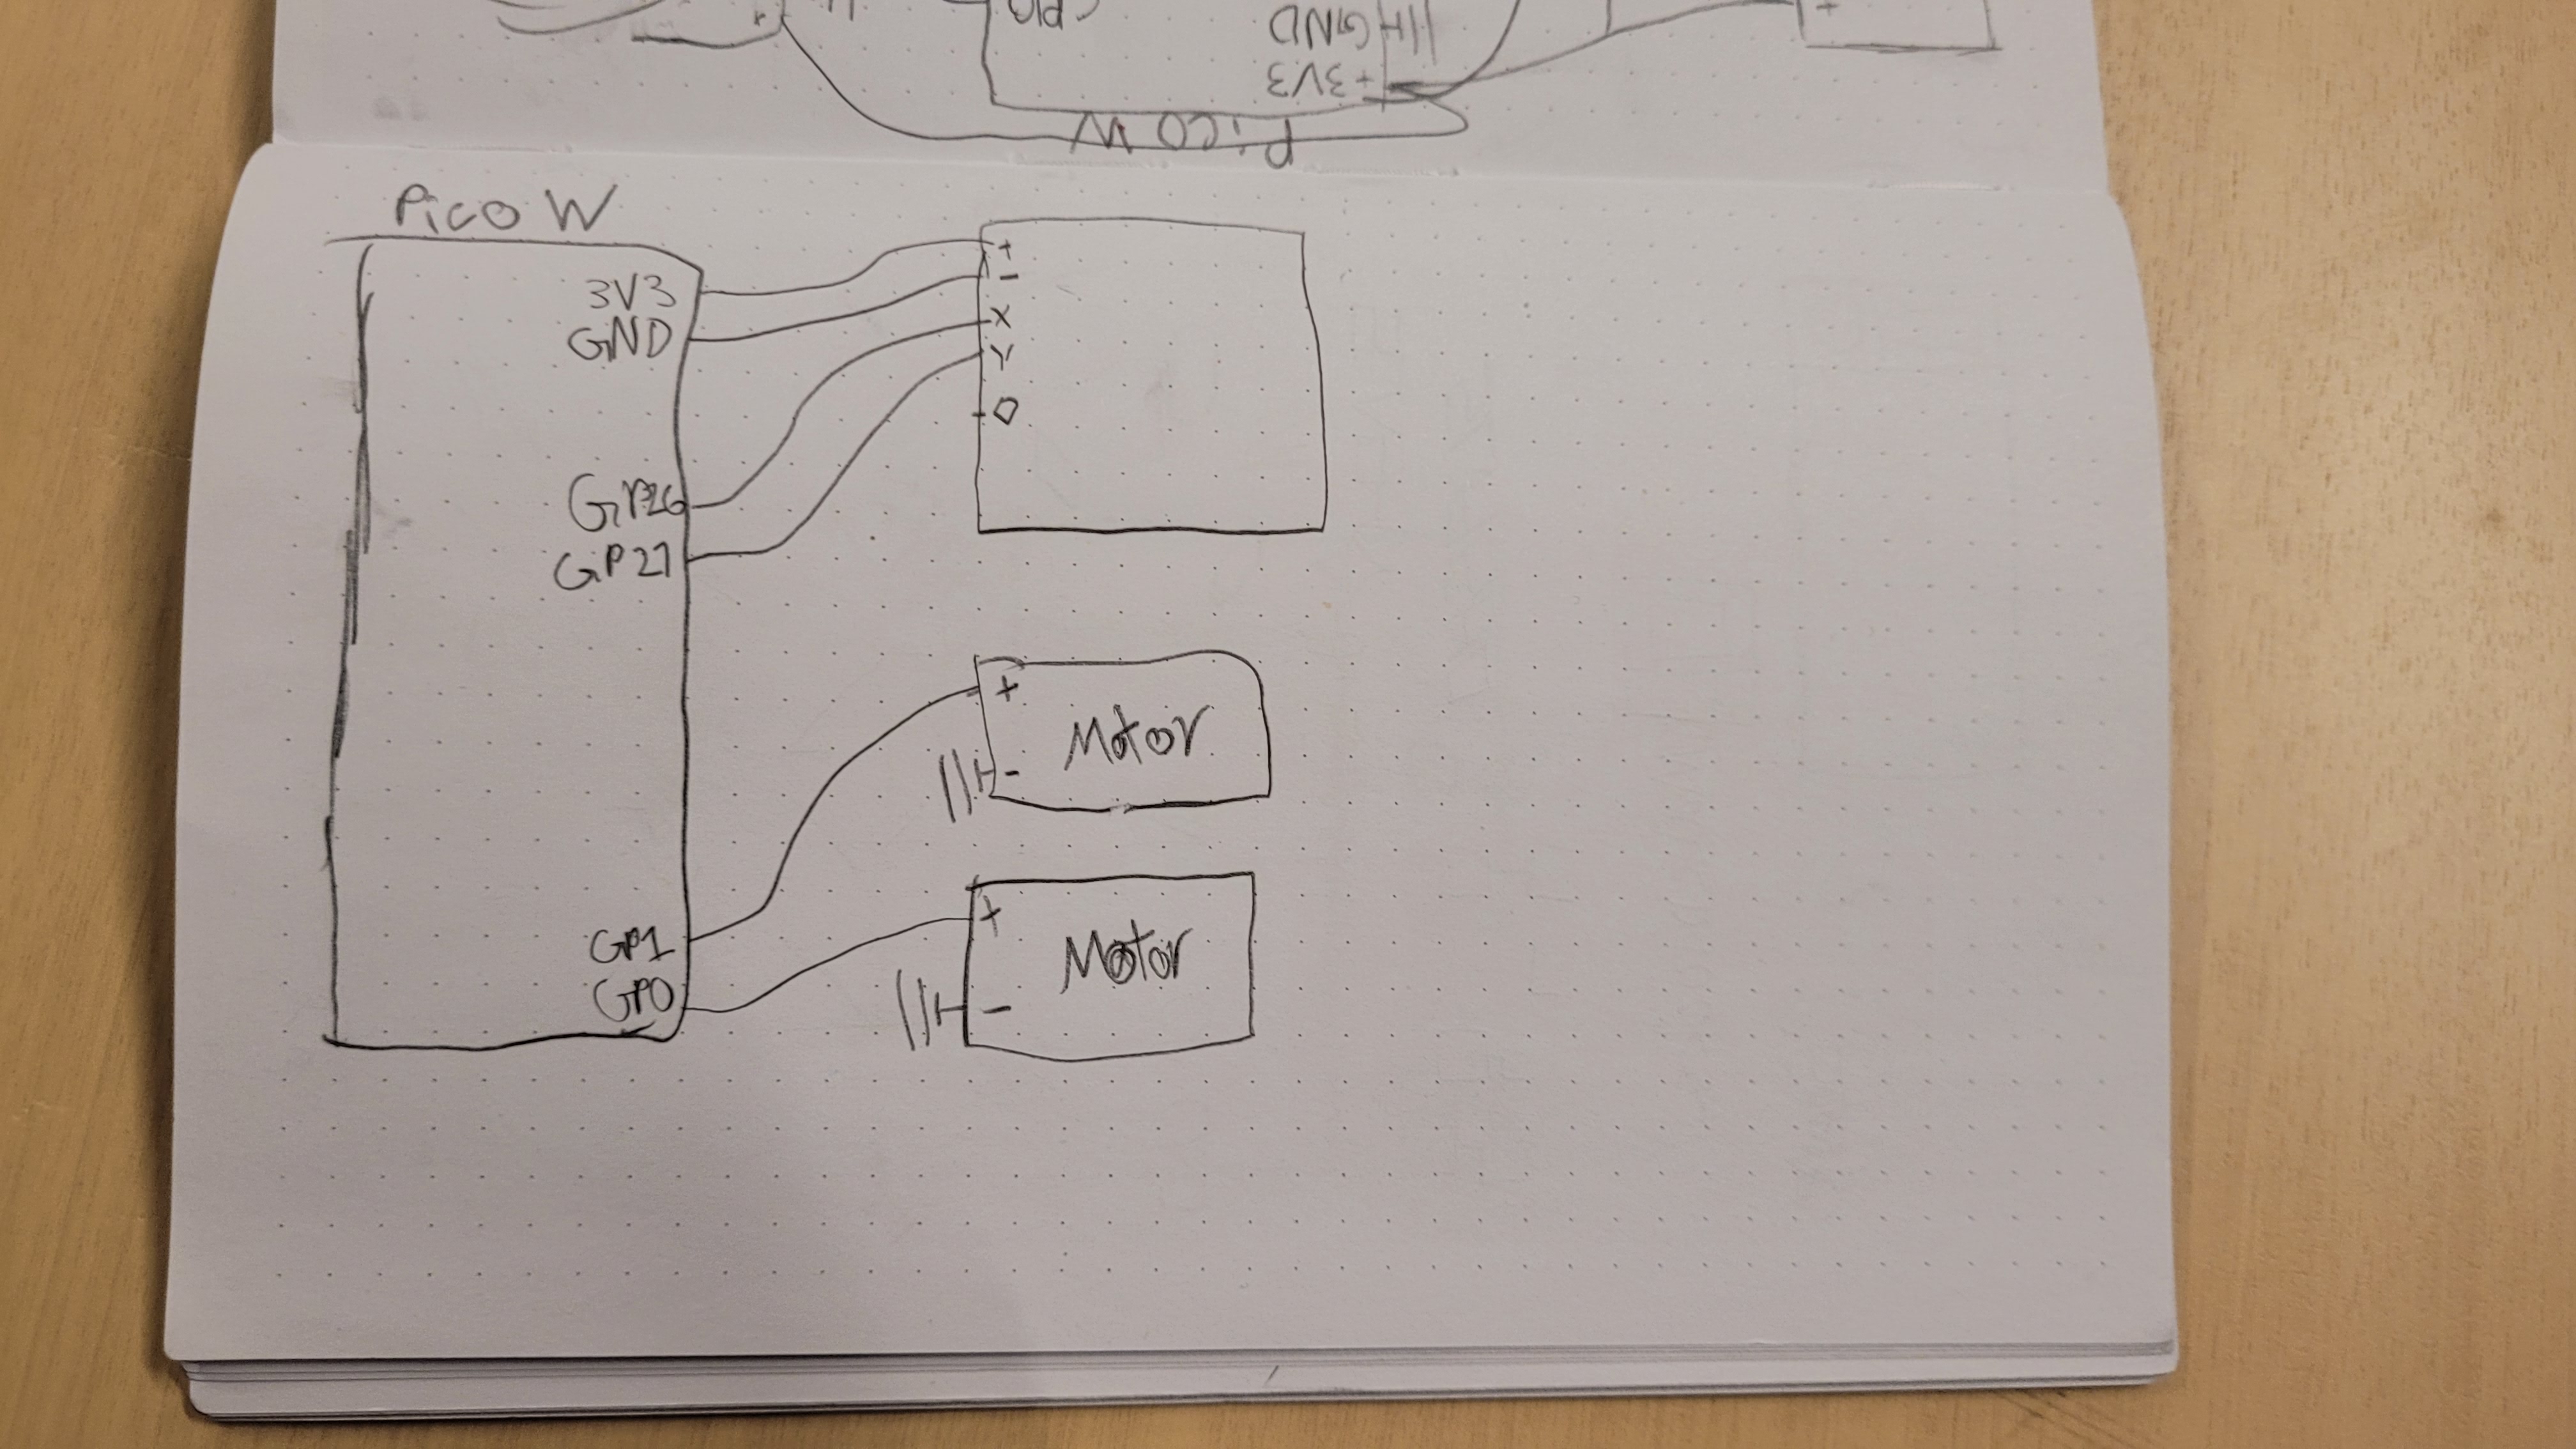 GPIO
GND
+3V3
Pico W
Pico W
3V3
GND
GP26
GP27
GP1
GP0
+
-
X
Y
+
Motor
-
+
Motor
-